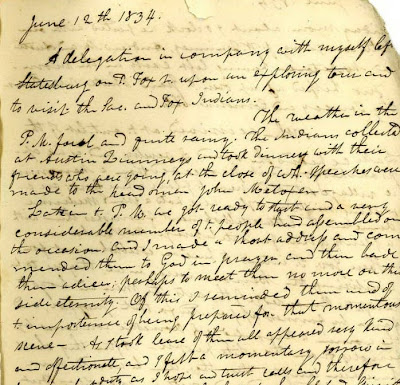 June 12th 1834.
A delegation in company with myself left
Statesburg on D. Fox r. upon an exploring tour and
to visit the Sac. and Fox Indians.
The weather in the
P.M. and quite rainy. The Indians collected
at Austin and took dinner with their
friends who are going, at the close of wh. speeches were
made to the head men John Metoxen—
Later P.M. we got ready to start and a very
considerable number of people had assembled on
the occasion and I made a short address and com
mended them to God in prayer, and then bade
them adieu; perhaps to meet them no more on this
side eternity. Of this I reminded them and of
importance of being prepared for that momentous
scene— As I took leave of them all appeared very kind
and affectionate, and I felt a momentary sorrow in
as I hope and trust calls and therefore